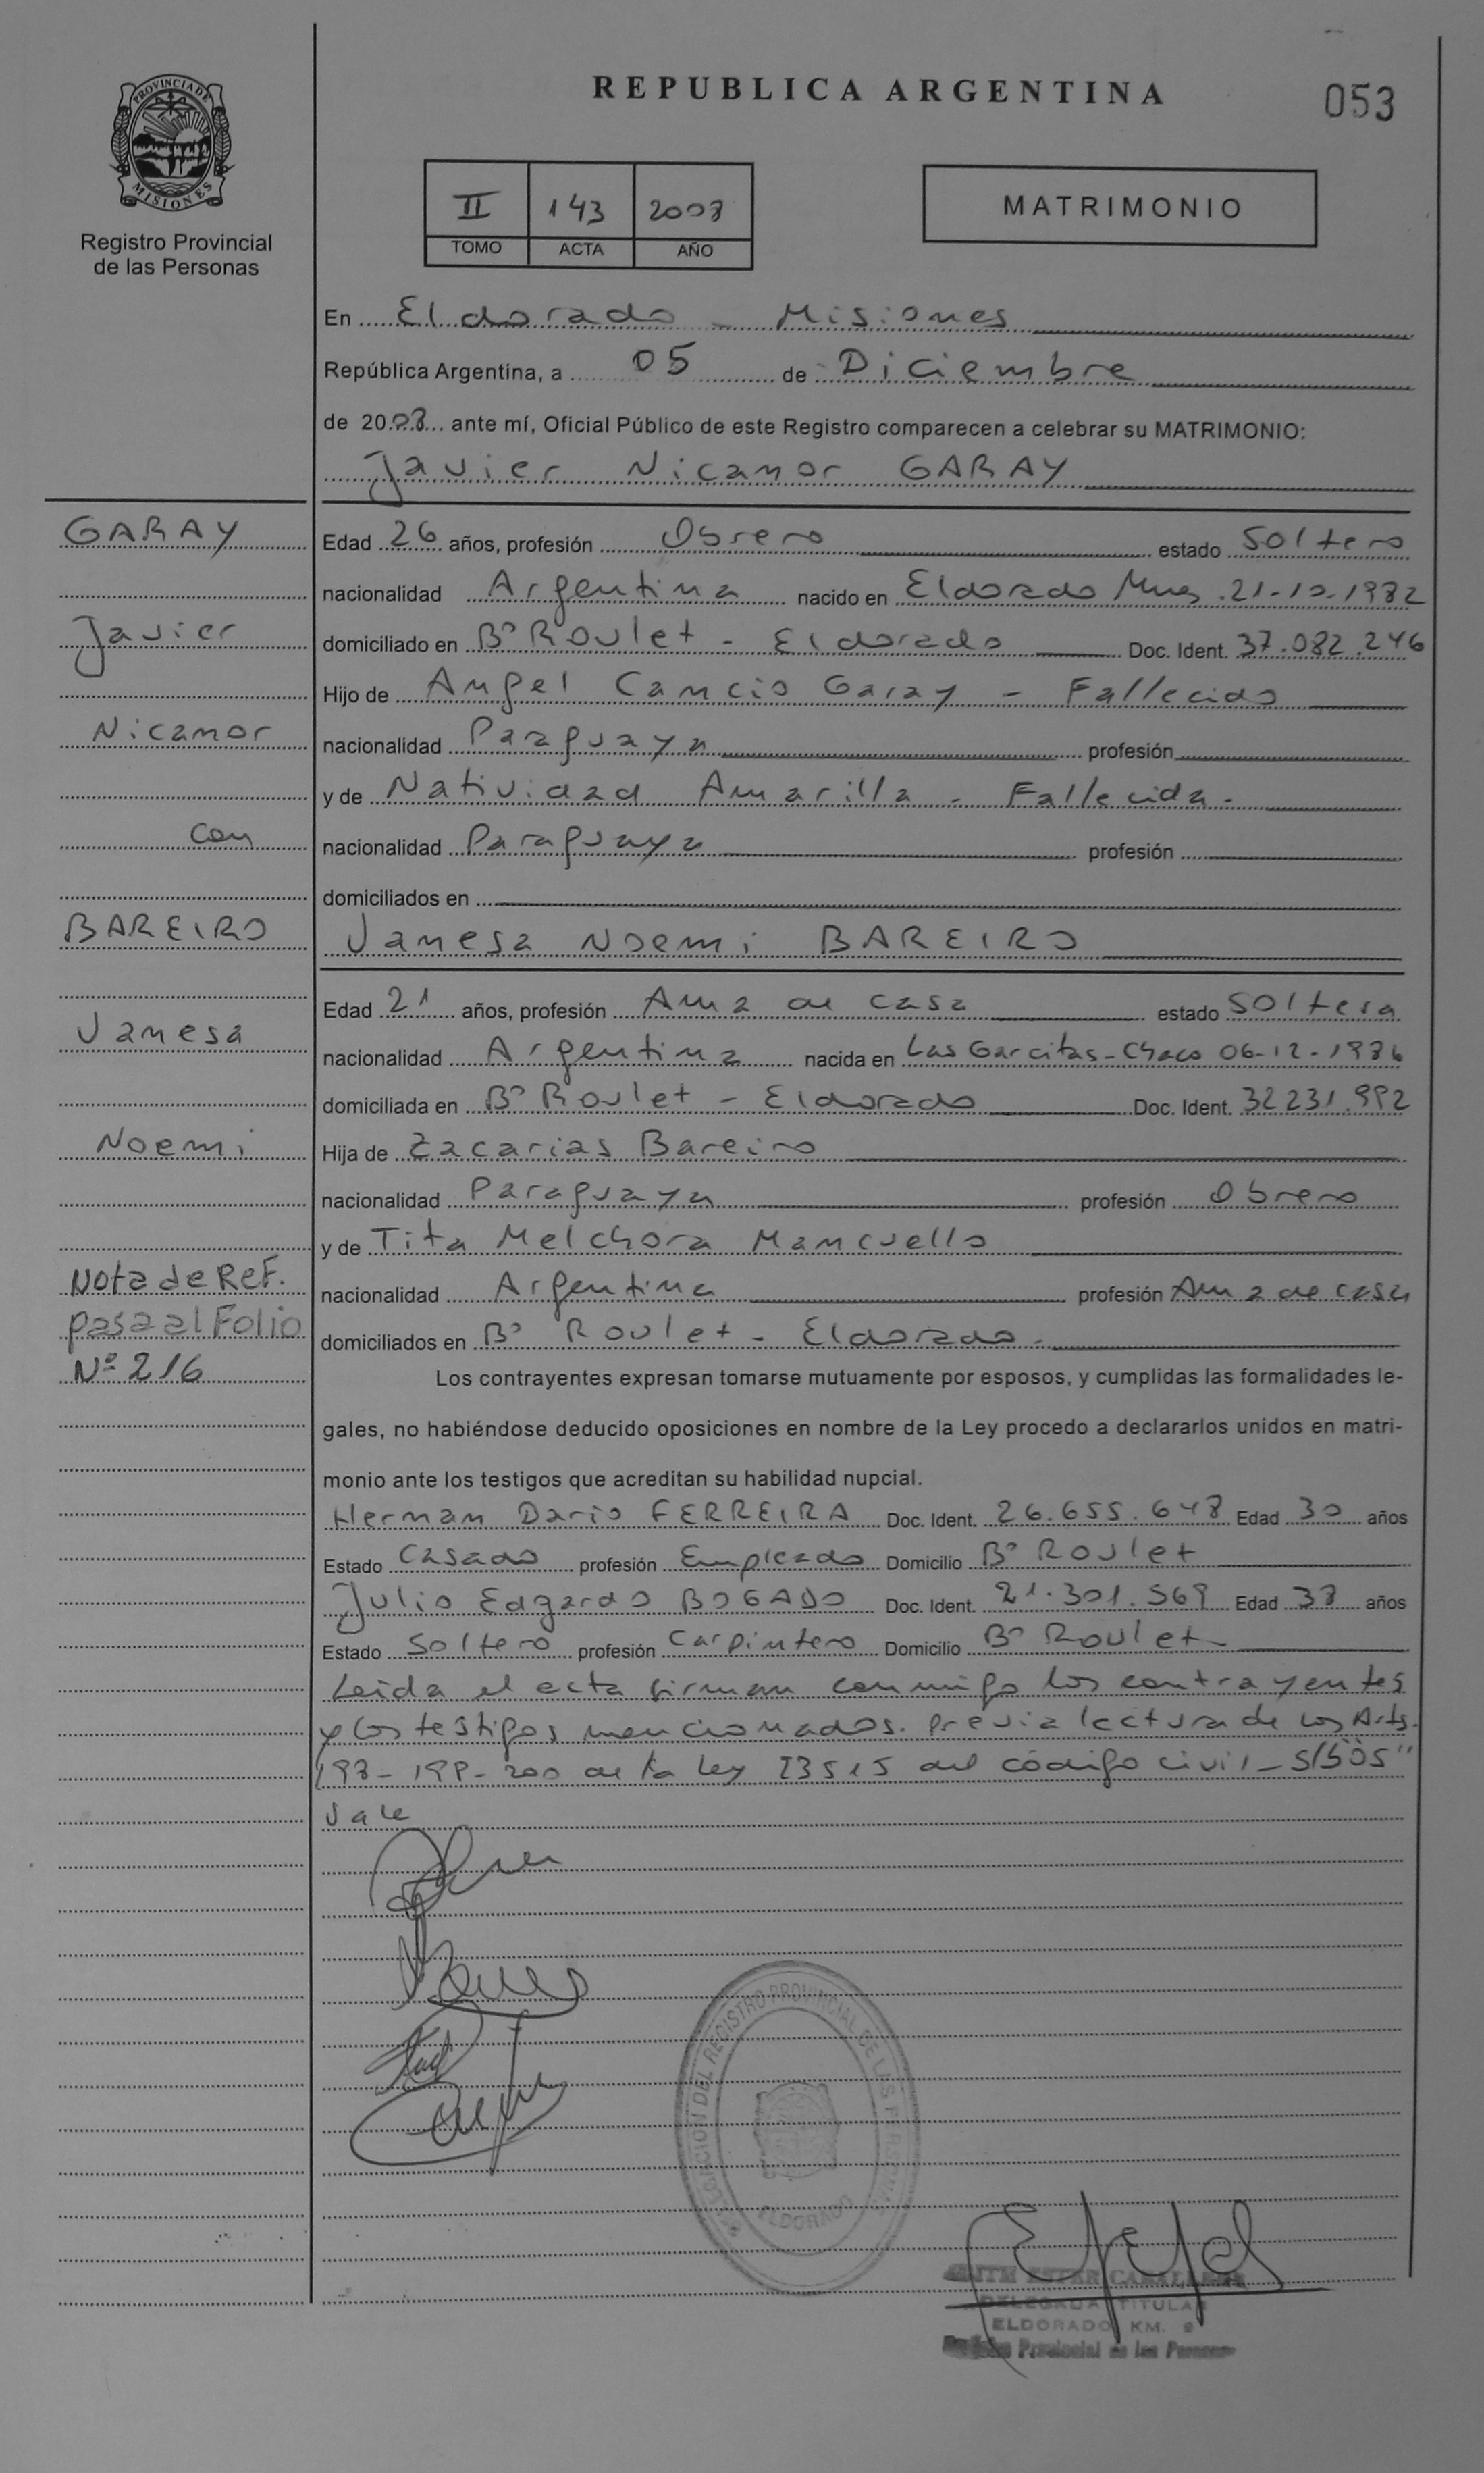 PROVINCIA DE
MISIONES
Registro Provincial
de las Personas
REPUBLICA ARGENTINA
053
II 143 2008
TOMO ACTA AÑO
MATRIMONIO
En Eldorado - Misiones
República Argentina, a 05 de Diciembre
de 2008 ante mí, Oficial Público de este Registro comparecen a celebrar su MATRIMONIO:
Javier Nicanor GARAY
GARAY
Javier
Nicanor
con
BAREIRO
Vanesa
Noemi
Nota de Ref.
pasa al Folio
Nº 216
Edad 26 años, profesión Obrero estado Soltero
nacionalidad Argentina nacido en Eldorado Mnes 21-10-1982
domiciliado en Bº Roulet - Eldorado Doc. Ident. 37.082.246
Hijo de Angel Cancio Garay - Fallecido
nacionalidad Paraguaya profesión
y de Natividad Amarilla - Fallecida -
nacionalidad Paraguaya profesión
domiciliados en
Vanesa Noemi BAREIRO
Edad 21 años, profesión Ama de casa estado Soltera
nacionalidad Argentina nacida en Las Garcitas - Chaco 06-12-1986
domiciliada en Bº Roulet - Eldorado Doc. Ident. 32231.992
Hija de Zacarias Bareiro
nacionalidad Paraguaya profesión Obrero
y de Tita Melchora Mancuello
nacionalidad Argentina profesión Ama de casa
domiciliados en Bº Roulet - Eldorado -
Los contrayentes expresan tomarse mutuamente por esposos, y cumplidas las formalidades le-
gales, no habiéndose deducido oposiciones en nombre de la Ley procedo a declararlos unidos en matri-
monio ante los testigos que acreditan su habilidad nupcial.
Hernan Dario FERREIRA Doc. Ident. 26.655.648 Edad 30 años
Estado Casado profesión Empleado Domicilio Bº Roulet
Julio Edgardo BOGADO Doc. Ident. 21.301.569 Edad 38 años
Estado Soltero profesión Carpintero Domicilio Bº Roulet -
Leida el acta firman conmigo los contrayentes
y los testigos mencionados. Previa lectura de los Arts.
198 - 199 - 200 de la Ley 23515 del código civil - S/b "05"
Vale
DELEGACION DEL REGISTRO PROVINCIAL DE LAS PERSONAS
ELDORADO
ESTER
DELEGADA TITULAR
ELDORADO KM. 9
Provincial de las Personas